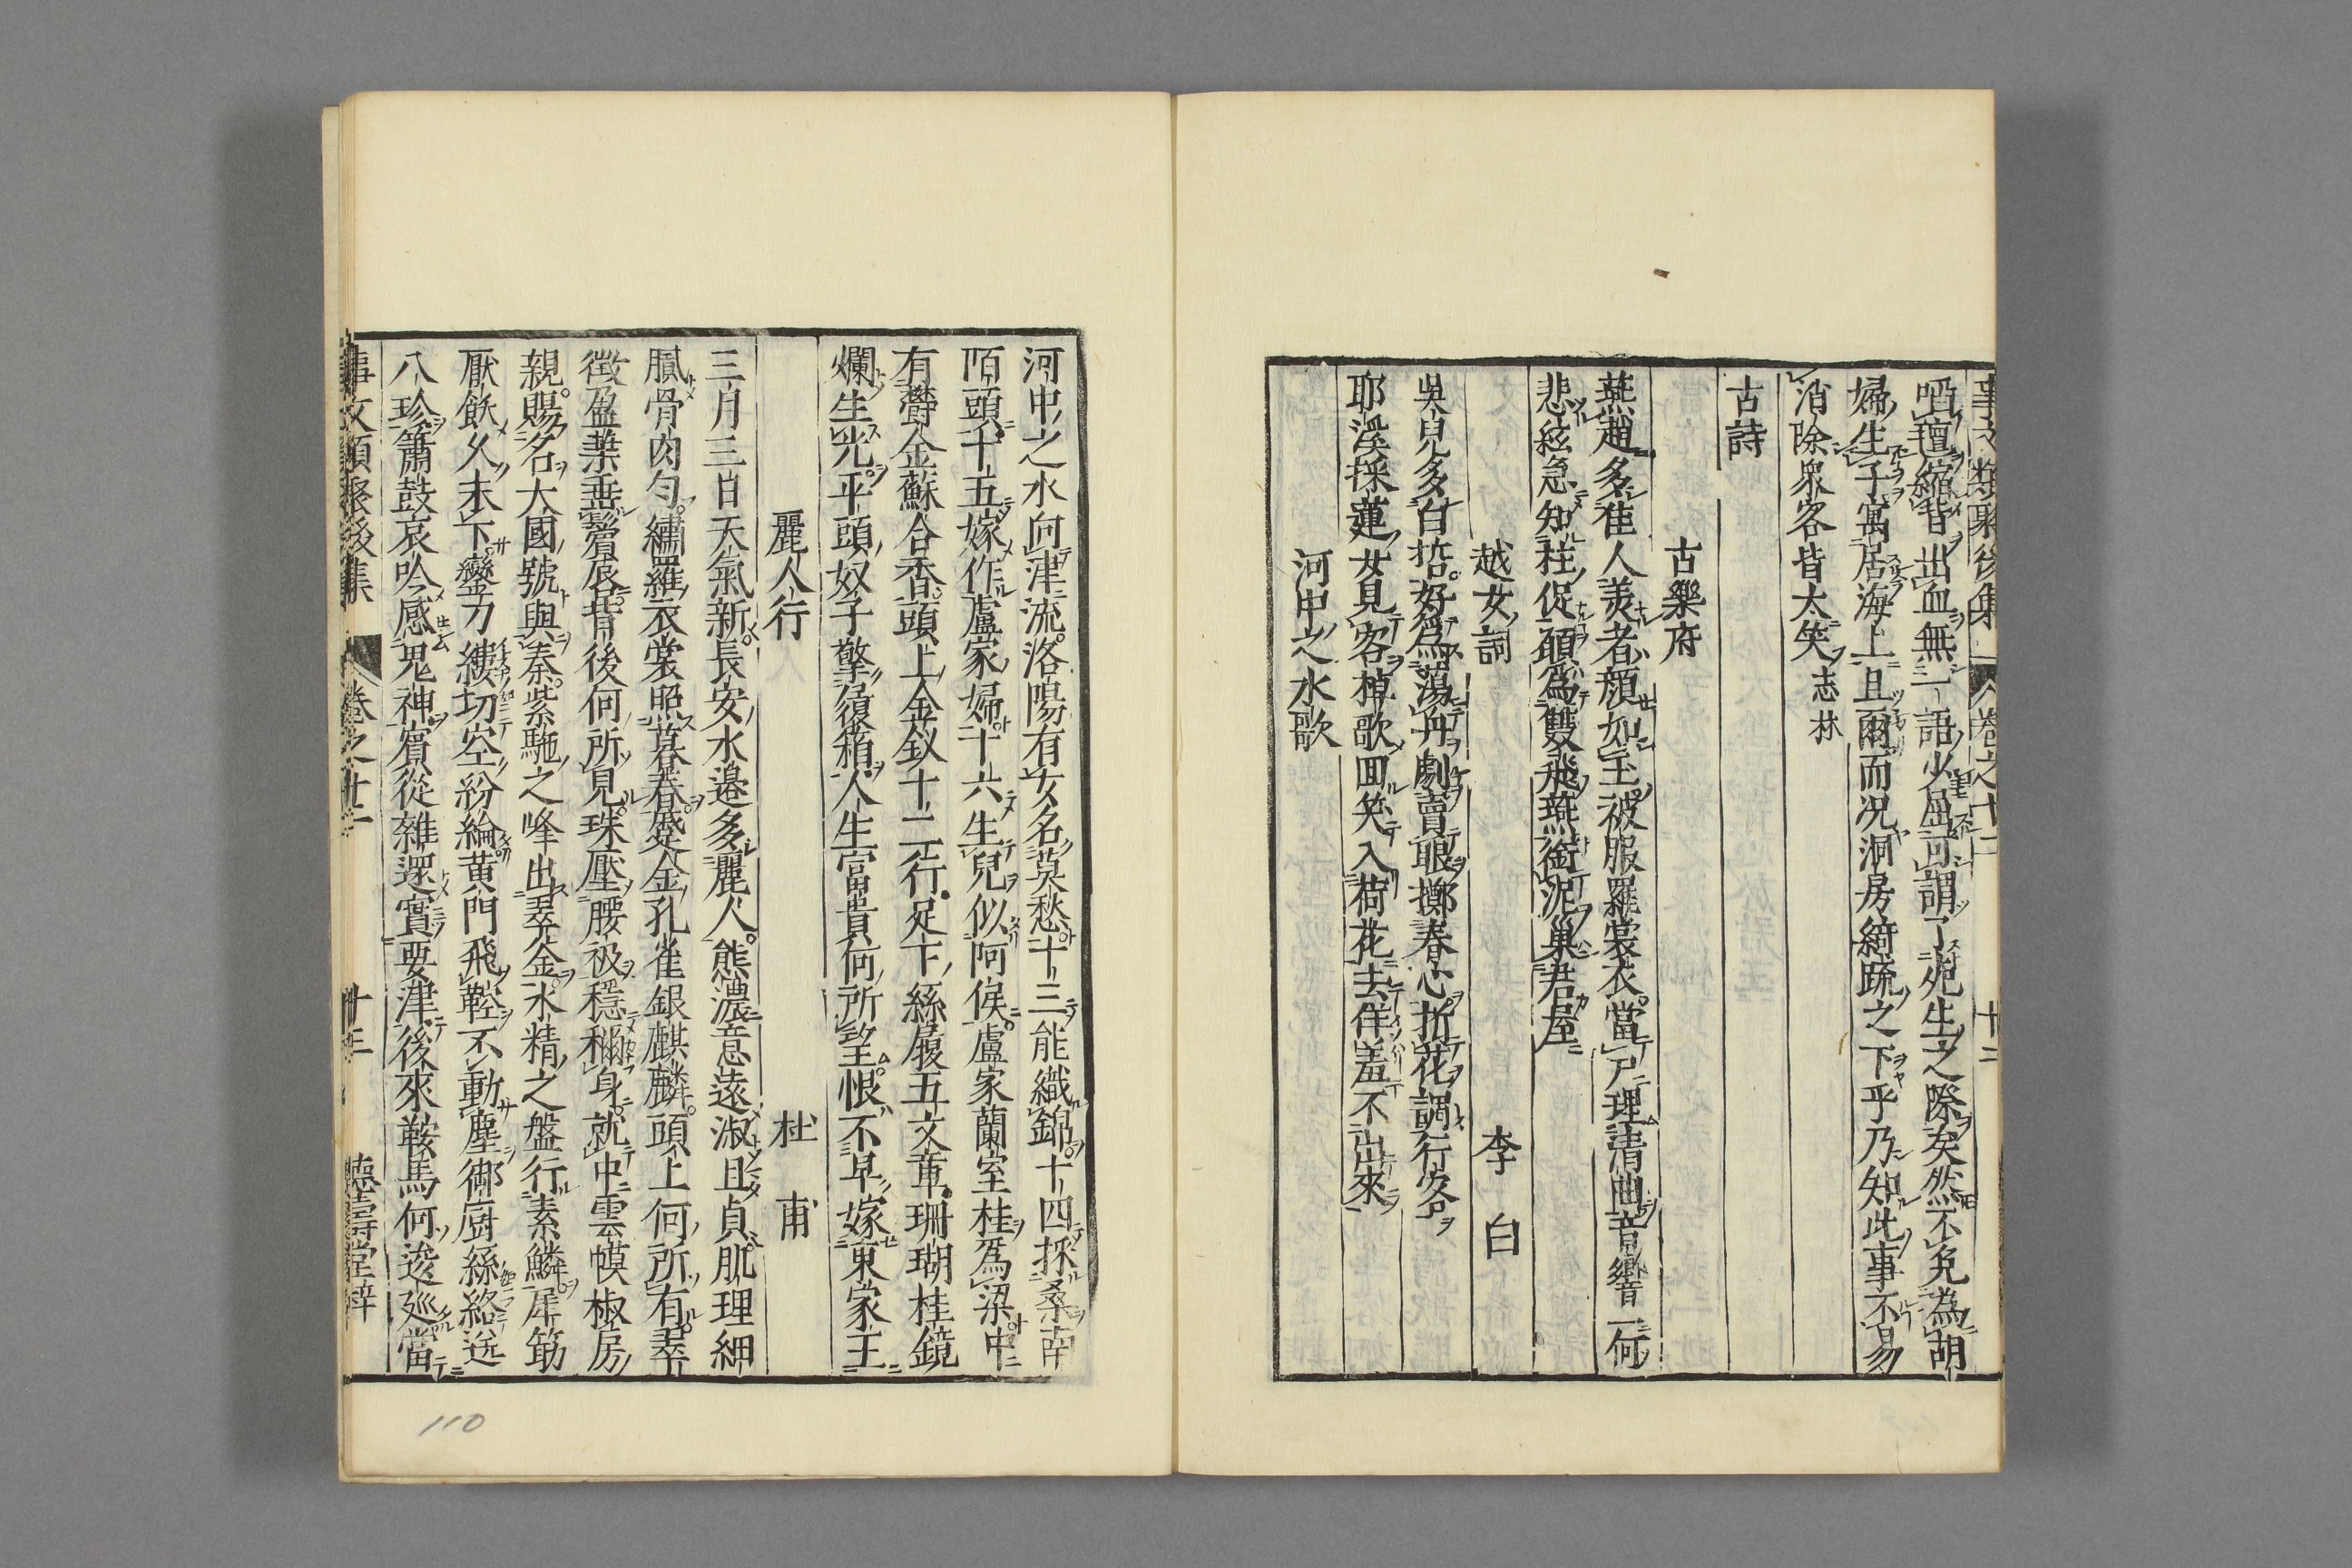 事文類聚後集 卷之十二 廿二
咂蝗縮皆出血無一語少屈可謂了死生之際矣然不免為胡
婦生子寓居海上且爾而况洞房綺疏之下乎乃知此事不易
消除衆客皆大笑 志林
古詩
古樂府
燕趙多佳人美者顔如玉被服羅裳衣當户理清曲音響一何
悲絃急知柱促願爲雙飛燕銜泥巢君屋
越女詞 李白
吳兒多白皙好爲蕩舟劇賣眼擲春心折花調行客
耶溪採蓮女見客棹歌囬笑入荷花去佯羞不出來
河中之水歌
河中之水向津流洛陽有女名莫愁十三能織錦十四採桑南
陌頭十五嫁作盧家婦十六生兒似阿侯盧家蘭室桂爲梁中
有鬱金蘇合香頭上金釵十二行足下絲履五文章珊瑚桂鏡
爛生光平頭奴子擎履箱人生富貴何所望恨不早嫁東家王
麗人行 杜甫
三月三日天氣新長安水邊多麗人態濃意遠淑且貞肌理細
膩骨肉勻繡羅衣裳照暮春蹙金孔雀銀麒麟頭上何所有翠
微盍葉垂鬢唇背後何所見珠壓腰衱穩稱身就中雲幙椒房
親賜名大國號與秦紫駞之峰出翠釜水精之盤行素鱗犀筯
厭飫久未下鸞刀縷切空紛綸黄門飛鞚不動塵御厨絲絡送
八珍簫鼓哀吟感鬼神賓從雜遝實要津後來鞍馬何逡廵當
事文類聚後集 卷之廿二 廿三 聴壽堂梓
110